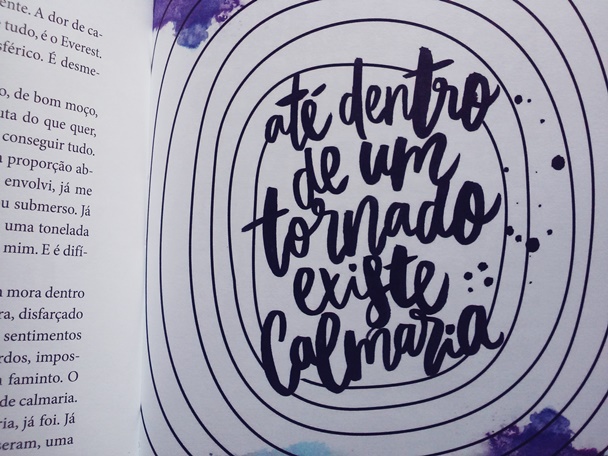 ente. A dor de ca-
tudo, é o Everest.
sférico. É desme-
o, de bom moço,
uta do que quer,
conseguir tudo.
a proporção ab-
envolvi, já me
u submerso. Já
uma tonelada
mim. E é difí-
m mora dentro
ra, disfarçado
sentimentos
rdos, impos-
faminto. O
de calmaria.
ria, já foi. Já
seram, uma
até dentro
de um
tornado
existe
Calmaria